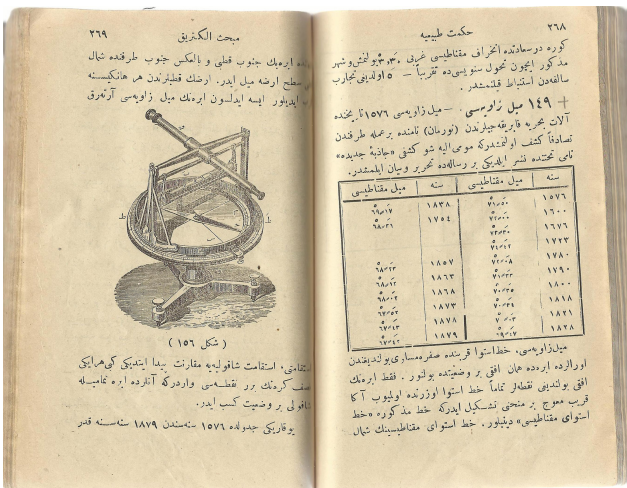 ٢٦٨
حكمت طبيعيه
كوره درسعادتده انحراف مقناطيسى غربى ٣،٣٠ بولنمش وشهر
مذكور ايچون تحول سنويسى ده تقريباً — ٥ اولديغى تجارب
سالفه‌دن استنباط قيلنمشدر.
+ ١٤٩ ميل زاويه‌سى. — ميل زاويه‌سى ١٥٧٦ تاريخنده
آلات بحريه فابريقه‌جيلرندن (نورمان) نامنده بر عمله طرفندن
تصادفاً كشف اولنمشدر كه مومى اليه شو كشفى «جاذبهٔ جديده»
نامى تحتنده نشر ايلديكى بر رساله‌ده تحرير وبيان ايلمشدر.
سنه ميل مقناطيسى سنه ميل مقناطيسى
١٥٧٦ ٧١َ،٥٠ ١٨٣٨ ٦٩َ،١٧
١٦٠٠ ٧٢َ،٠٠ ١٧٥٤ ٦٨َ،٣١
١٦٧٦ ٧٣َ،٣٠
١٧٢٣ ٧٤َ،٤٢
١٧٨٠ ٧٢َ،٠٨ ١٨٥٧ ٦٨َ،٢٣
١٧٩٠ ٧١َ،٣٣ ١٨٦٣ ٦٨َ،١٢
١٨٠٠ ٧٠َ،٣٥ ١٨٦٨ ٦٨َ،٠٢
١٨١٨ ٧٠َ،٣٤ ١٨٧٣ ٦٧َ،٥٢
١٨٢١ ٧٠َ،٠٣ ١٨٧٨ ٦٧َ،٤٣
١٨٢٨ ٦٩َ،٤٧ ١٨٧٩ ٦٧َ،٤٢
ميل زاويه‌سى، خط استوا قربنده صفره مساوى بولنديغندن
اورالرده ابره‌ده همان افقى بر وضعيتده بولنور. فقط ابره‌نك
افقى بولنديغى نقطه‌لر تماماً خط استوا اوزرنده اوليوب آكا
قريب معوج بر منحنى تشكيل ايدر كه خط مذكوره «خط
استواى مقناطيسى» دينيلور. خط استواى مقناطيسينك شمال
٢٦٩
مبحث الكتريق
ابره‌نك جنوب قطبى و بالعكس جنوب طرفنده شمال
سطح ارضه ميل ايدر. ارضك قطبلرندن هر هانكيسنه
ايديلور ايسه ايدلسون ابره‌نك ميل زاويه‌سى آرته‌رق
( شكل ١٥٦ )
استقامتى، استقامت شاقوليه به مقارنت پيدا ايتديكى كبى هر ايكى
نصف كره‌نك بر نقطه‌سى واردر كه آنلرده ابره تماميله
شاقولى بر وضعيت كسب ايدر.
يوقاريكى جدولده ١٥٧٦ سنه‌سندن ١٨٧٩ سنه‌سنه قدر